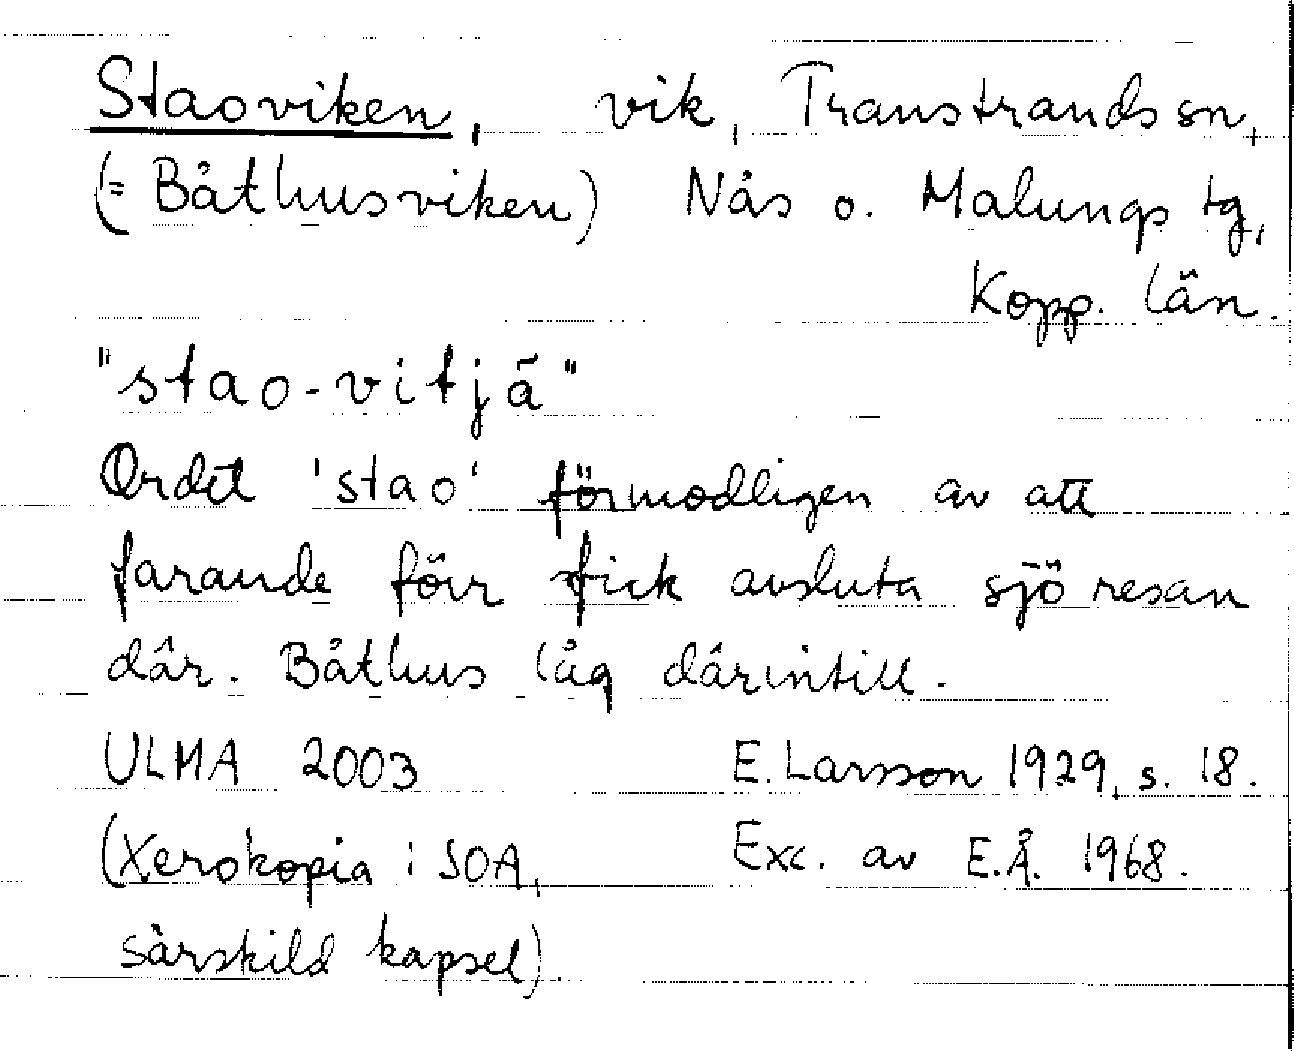 Staoviken, vik, Transtrands sn,
(= Båthusviken) Nås o. Malungs tg,
Kopp. län.
"stao-vitjä"
Ordet 'stao' förmodligen av att
farande förr fick avsluta sjöresan
där. Båthus låg därintill.
ULMA 2003 E. Larsson 1929, s. 18.
(Xerokopia i SOA, Exc. av E.Å. 1968.
särskild kapsel).